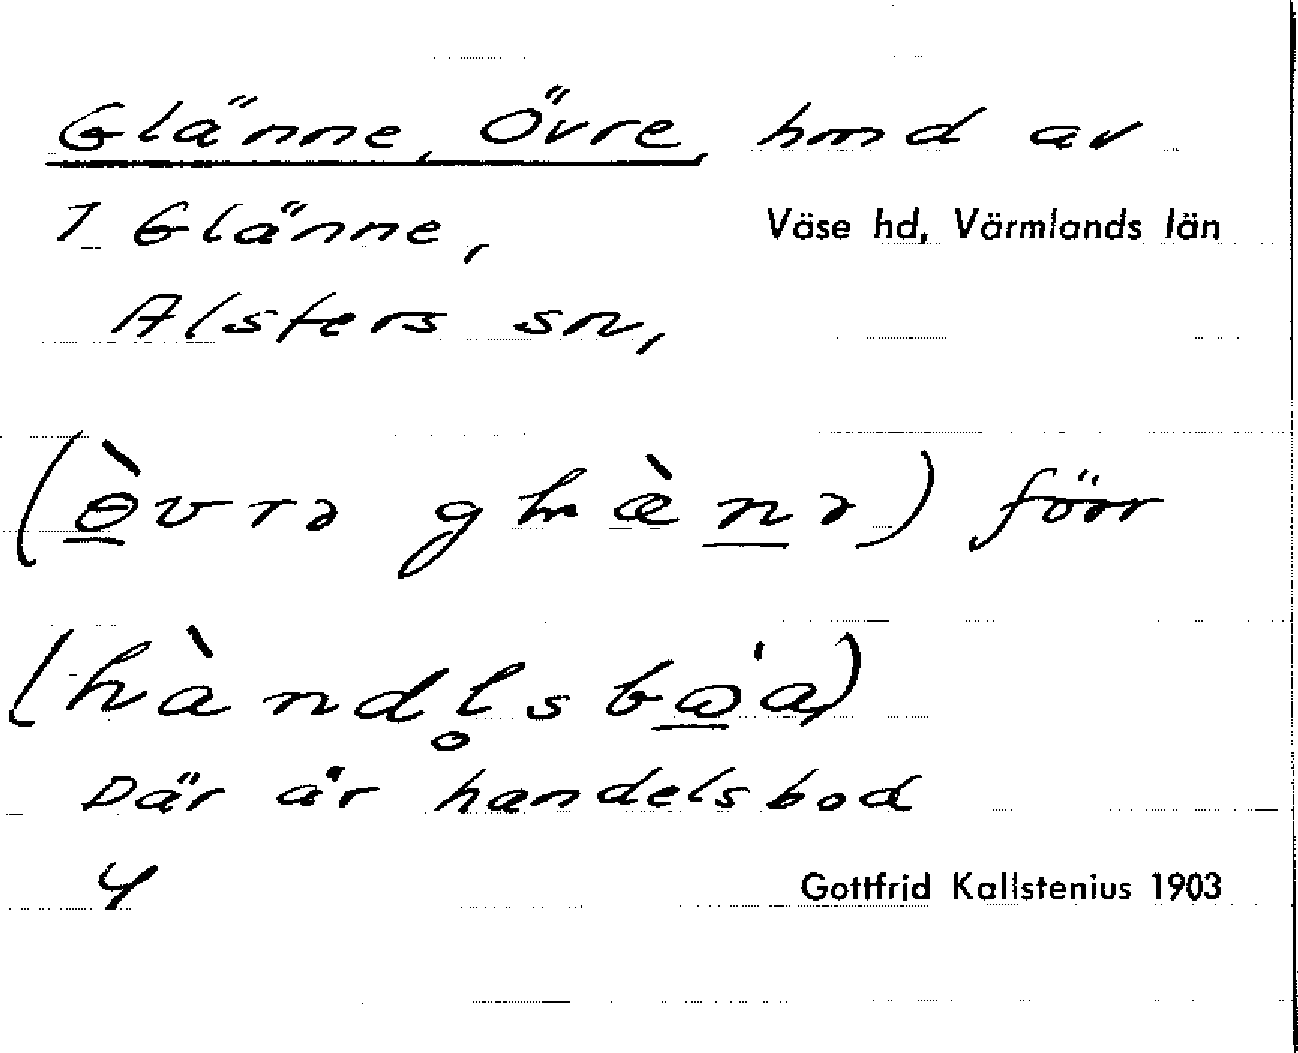 Glänne, Övre, hmd av
1 Glänne,
Väse hd, Värmlands län
Alsters sn,
(ɵ̀vrə ghæ̀nə) förr
(hàndl̥sbωa)
Där är handelsbod
4
Gottfrid Kallstenius 1903